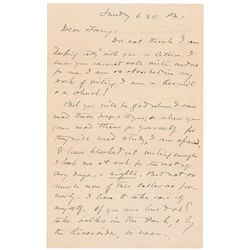 Sunday 6 30 PM.
Dear Fanny:
Do not think I am
keeping tally with you in letters. I
know you cannot well write, and as
for me I am so absorbed in my
work of writing I am a hermit
or a churl!
But you will be glad when I can
read these pages to you, or when you
can read them for yourself, for
they will need study, I am afraid,
I have blacked out writing enough
to look me at work for the rest of
my days - & nights. But not so
much now of this latter as for-
merly. I have to take care of
myself. If you were here I'd
take walks in the Park, & by
the Riverside, so near.